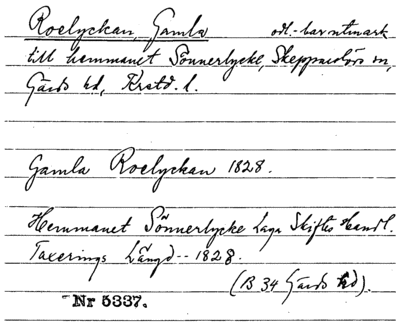 Roelyckan, Gamla odl.-bar utmark
till hemmanet Sönnerlycke, Skepparslövs sn,
Gärds hd, Krstd. l.
Gamla Roelyckan 1828.
Hemmanet Sönnerlycke Laga Skiftes Handl.
Taxerings Längd -- 1828.
(B 34 Gärds hd).
Nr 5337.